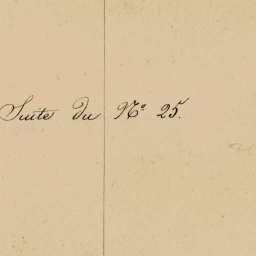 Suite du Nº 25.